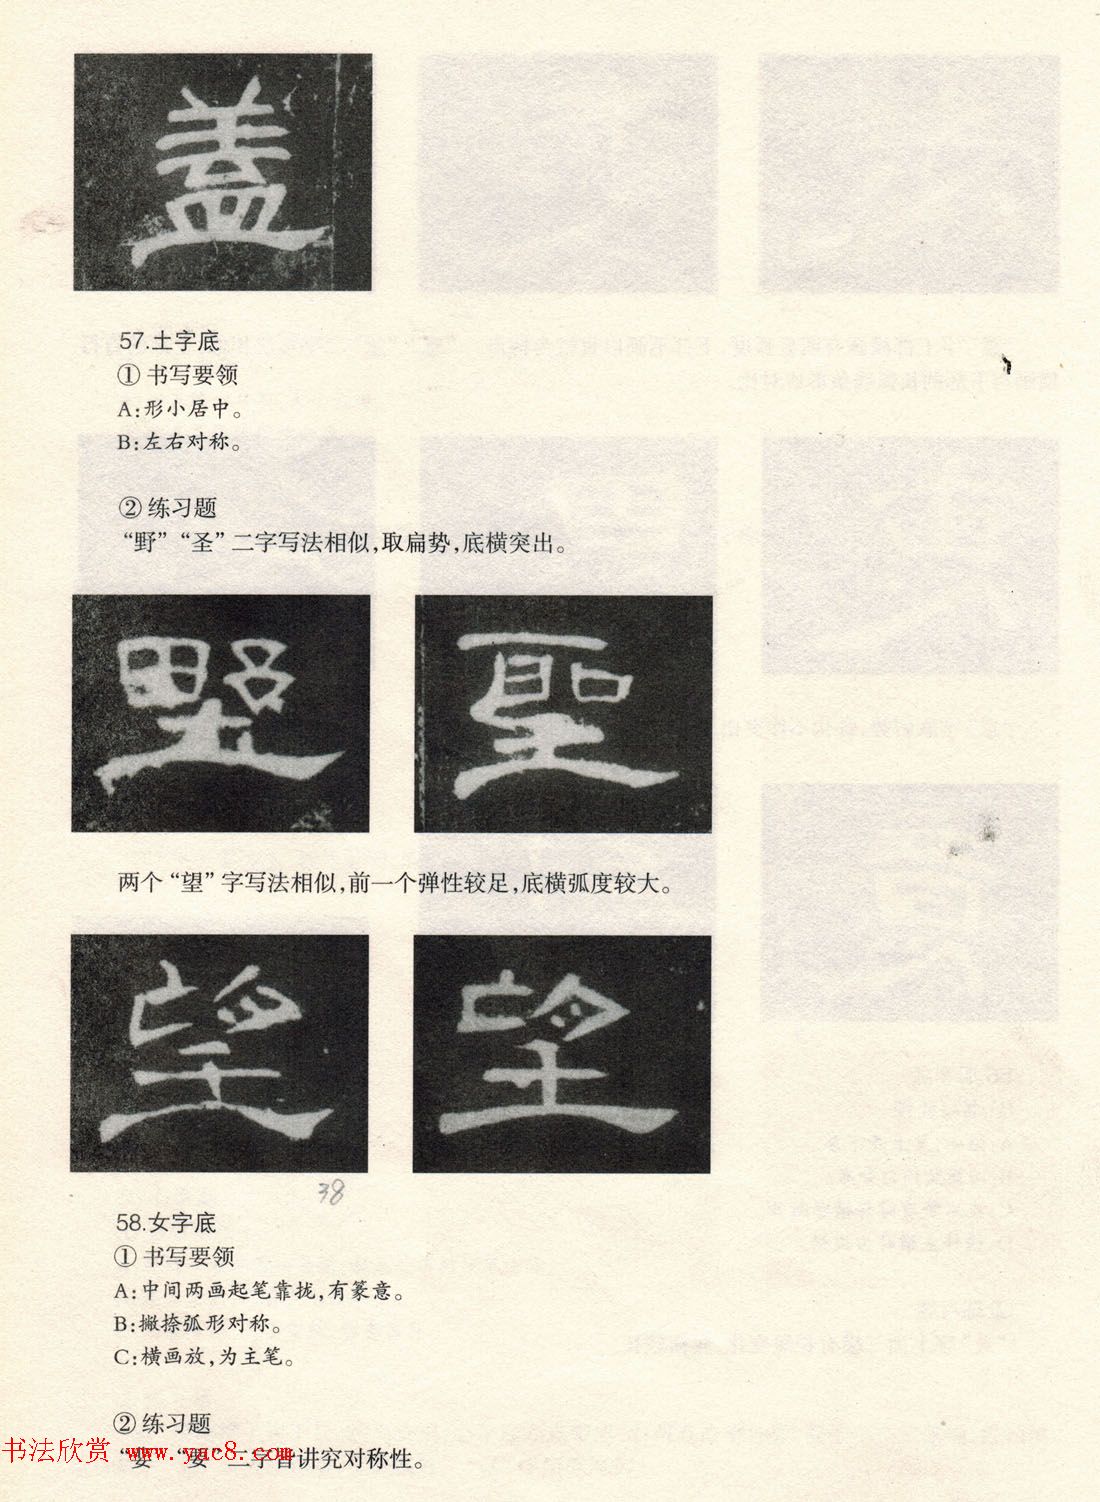 盖
57.土字底
① 书写要领
A:形小居中。
B:左右对称。
② 练习题
“野”“圣”二字写法相似,取扁势,底横突出。
野 聖
两个“望”字写法相似,前一个弹性较足,底横弧度较大。
望 望
38
58.女字底
① 书写要领
A:中间两画起笔靠拢,有篆意。
B:撇捺弧形对称。
C:横画放,为主笔。
② 练习题
书法欣赏 www.yac8.com
二字皆讲究对称性。